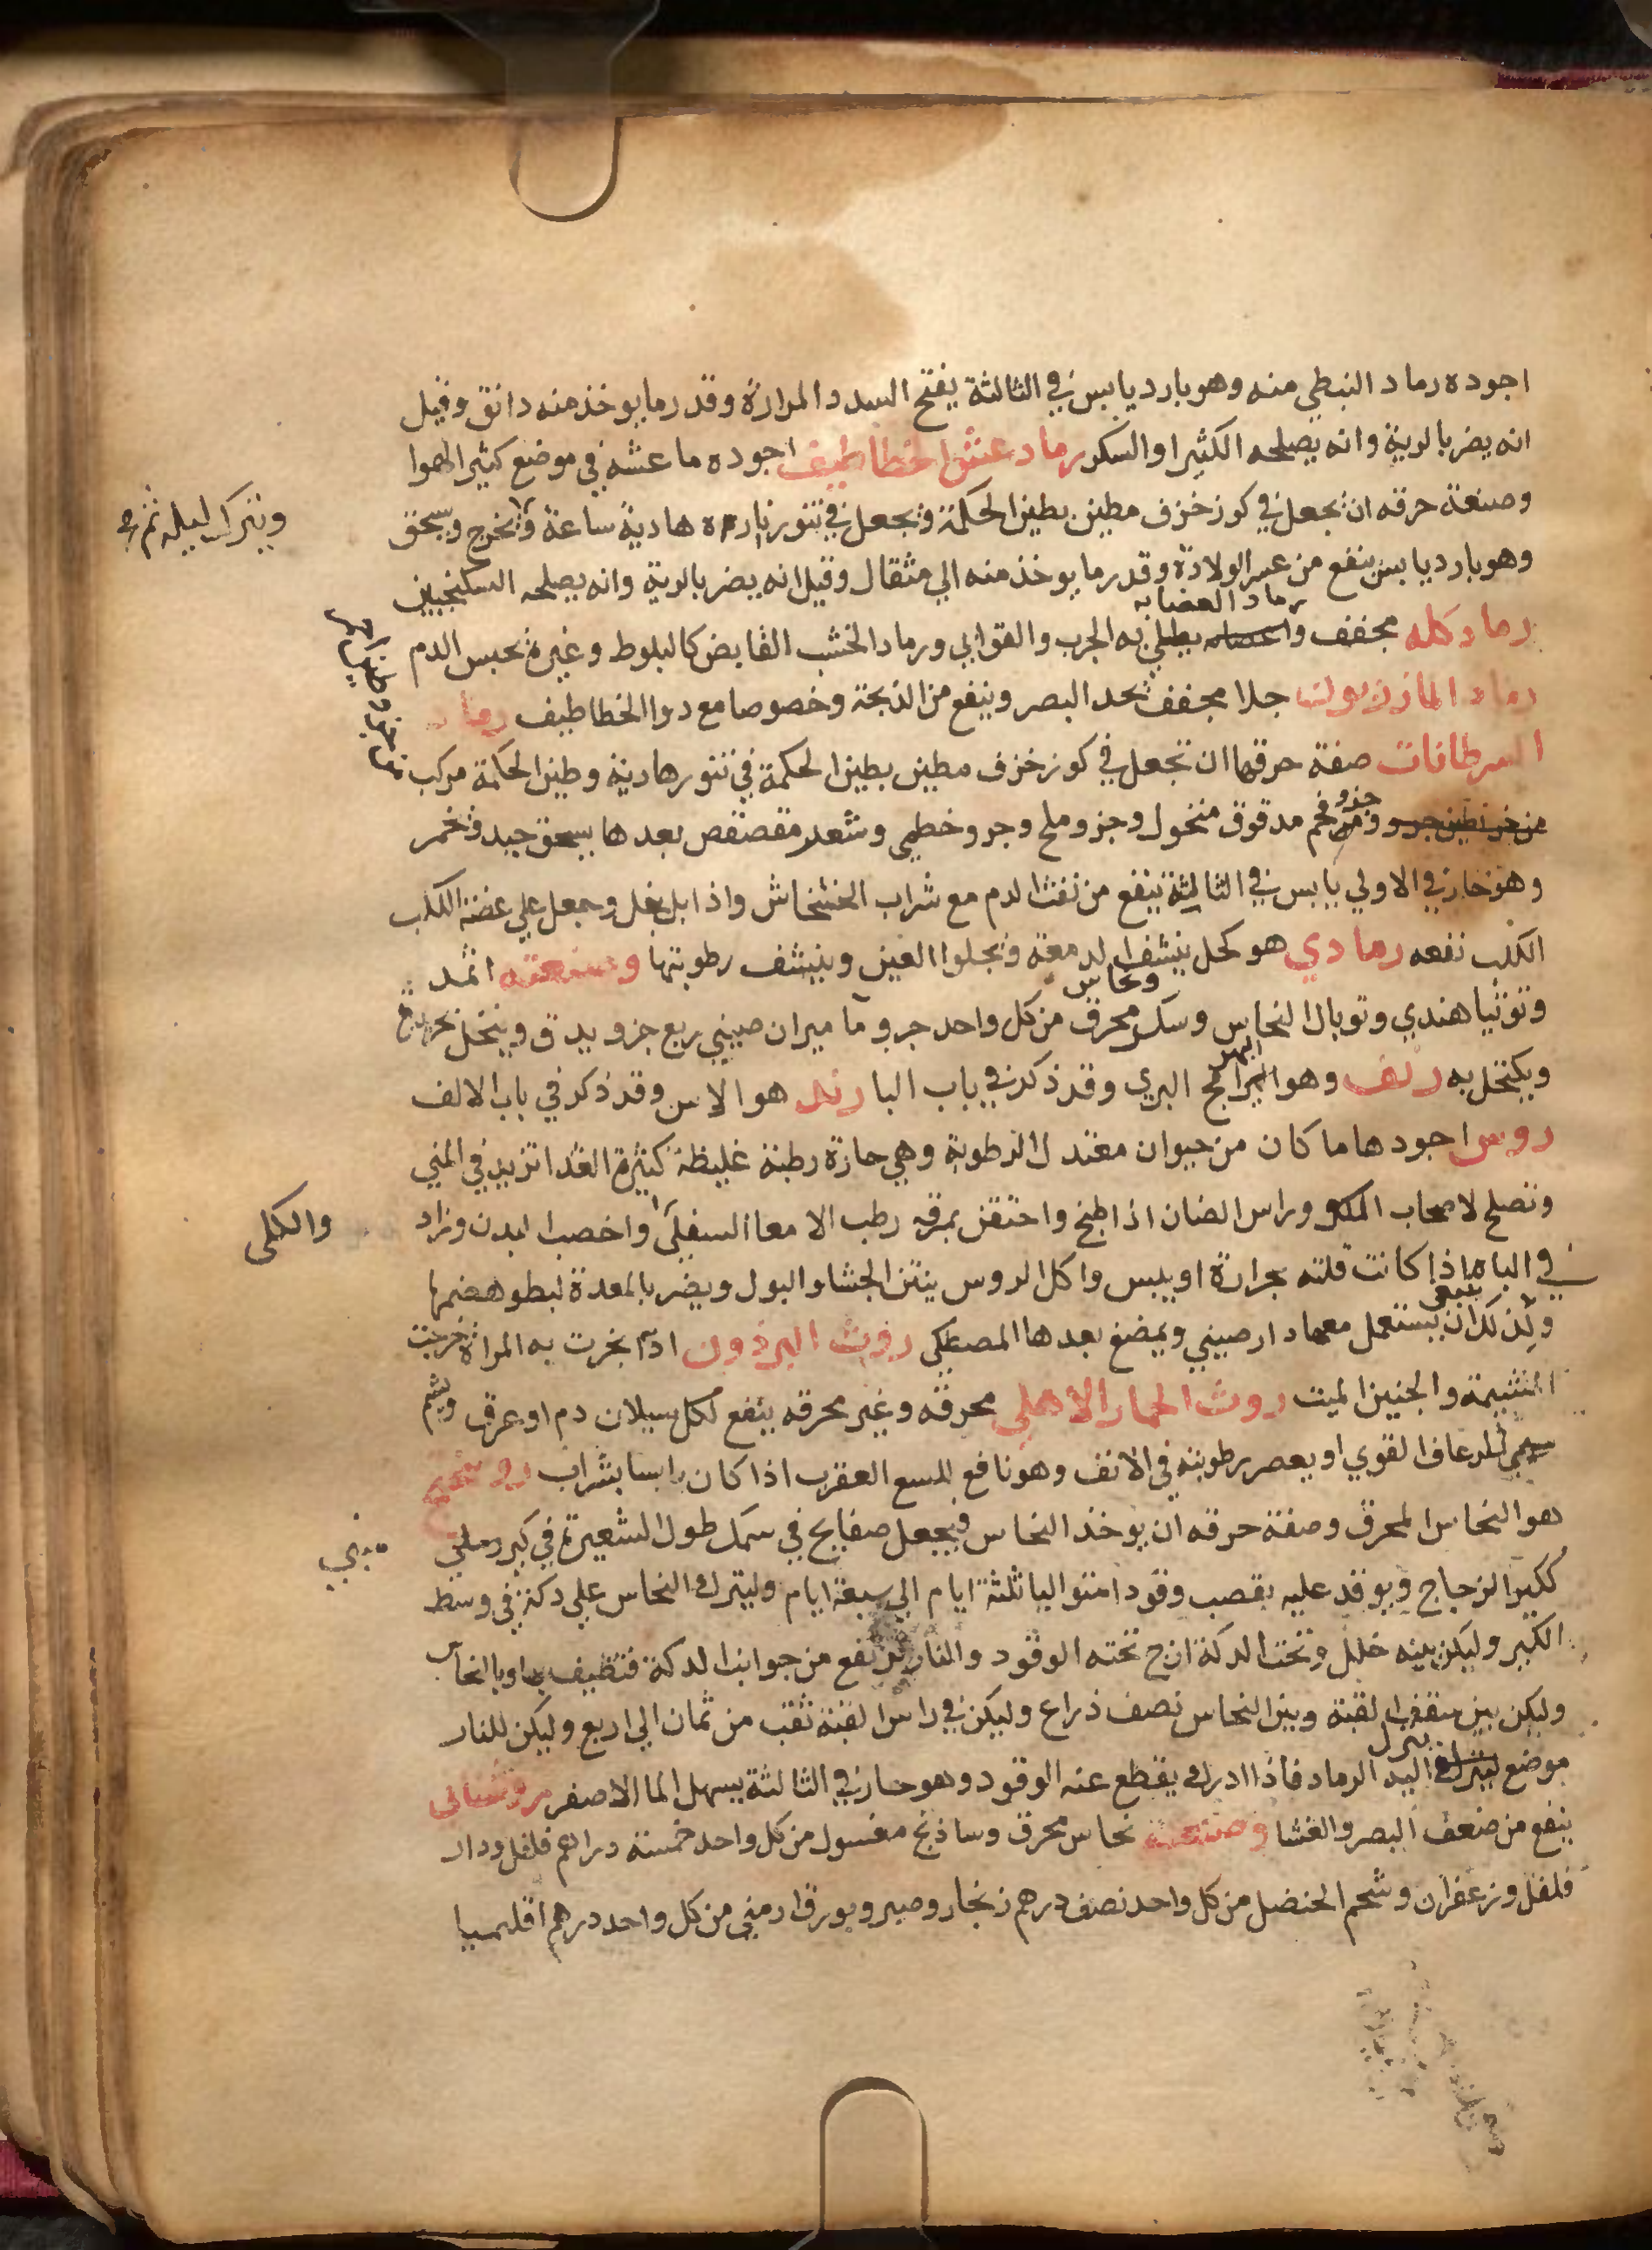 اجوده رماد النبطي منه وهو بارد يابس في الثالثة يفتح السدد والمرارة وقدر ما يوخذ منه دانق وقيل
انه يضر بالرية وانه يصلحه الكثيرا والسكر رماد عش الخطاطيف اجوده ما عشه في موضع كثير الهوا
وصنعة حرقه ان يجعل في كوز خزف مطين بطين الحكمة ويجعل في تنور ناره هادية ساعة ويخرج ويسحق
ويترك ليله ثم
وهو بارد يابس ينفع من عسر الولادة وقدر ما يوخذ منه الي مثقال وقيل انه يضر بالرية وانه يصلحه السكنجبين
رماد كله مجفف و رماد العضايه يطلي به الجرب والقوابي ورماد الخشب القابض كالبلوط وغيره يحبس الدم
رماد المازريون جلا مجفف يحد البصر وينفع من الذبحة وخصوصا مع دوا الخطاطيف رماد
السرطانات صفة حرقها ان تجعل في كوز خزف مطين بطين الحكمة في تنور هادية وطين الحكمة مركب
من جزو فحم مدقوق منخول وجزو ملح وجزو خطمي وشعر مقصقص بعدها يسحق جيد وتخمر
وهو حار في الاولي يابس في الثالثة ينفع من نفث الدم مع شراب الخشخاش واذا بل بخل وجعل علي عضة الكلب
الكلب نفعه رمادي هو كحل ينشف الدمعة ويجلوا العين وينشف رطوبتها وصنعته اثمد
وتوتيا هندي وتوبال النحاس وسك ونحاس محرق من كل واحد جزو ماميران صيني ربع جزو يدق وينخل بحرير
ويكتحل به رنف وهو البهرامج البري وقد ذكر في باب البا رند هو الاس وقد ذكر في باب الالف
روس اجودها ما كان من حيوان معتدل الرطوبة وهي حارة رطبة غليظة كثيرة الغذا تزيد في المني
وتصلح لاصحاب الكد وراس الضان اذا طبخ واحتقن بمرقه رطب الامعا السفلي واخصب البدن وزاد
والكلى
في الباه اذا كانت قلته بحرارة او يبس واكل الروس ينتن الجشا والبول ويضر بالمعدة لبطو هضمها
ولذلك ينبغي ان يستعمل معها دارصيني ويمضغ بعدها المصطكي روث البرذون اذا بخرت به المراة خرجت
المشيمة والجنين الميت روث الحمار الاهلي محرقه وغير محرقه ينفع لكل سيلان دم او عرق ويشم
للرعاف القوي او يعصر برطوبته في الانف وهو نافع للسع العقرب اذا كان يابسا بشراب روسختج
هو النحاس المحرق وصفة حرقه ان يوخذ النحاس ويجعل صفايح في سمك طول الشعيرة في كير مبني
ككير الزجاج ويوقد عليه بقصب وقودا متواليا ثلثة ايام الي سبعة ايام وليترك النحاس علي دكة في وسط
الكير وليكن بينه خلل وتحت الدكة ازج تحته الوقود والنار ترتفع من جوانب الدكة فتطيف بها وبالنحاس
وليكن بين سقف القبة وبين النحاس نصف ذراع وليكن في راس القبة ثقب من ثمان الي اربع وليكن للنار
موضع ينزل اليه الرماد فاذا ادرك يقطع عنه الوقود وهو حار في الثالثة يسهل الما الاصفر روشنائي
ينفع من ضعف البصر والغشا وصنعته نحاس محرق وساذنج مغسول من كل واحد خمسة دراهم فلفل ودار
فلفل وزعفران وشحم الحنضل من كل واحد نصف درهم زنجار وصبر وبورق ارمني من كل واحد درهم اقليميا